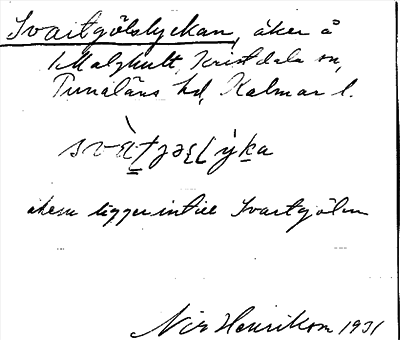 Svartgölslyckan, åker å
Malghult, Kristdala sn,
Tunaläns hd, Kalmar l.
åkern ligger intill Svartgölen
Nils Henrikson 1931